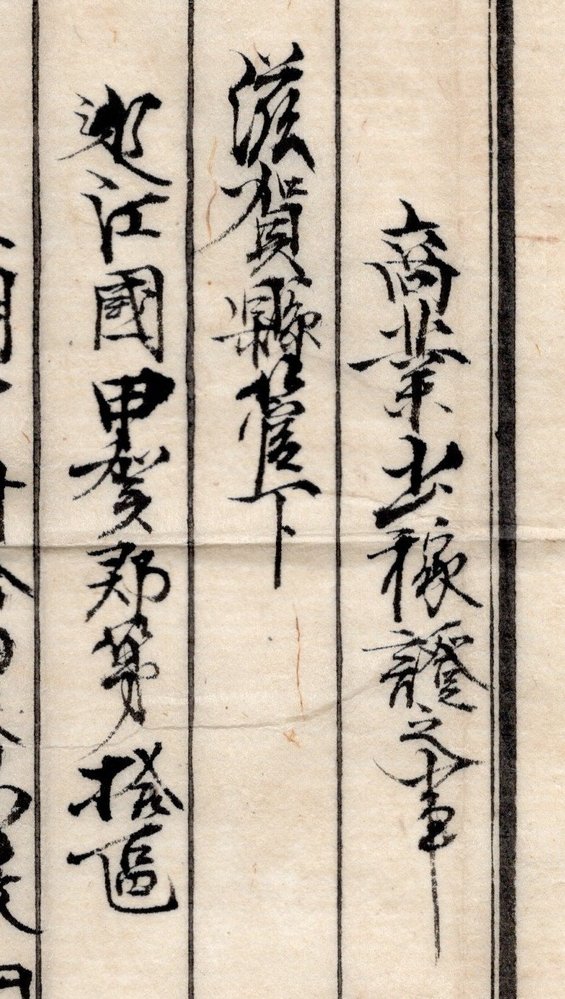 商業出稼證之事
滋賀縣管下
近江國甲賀郡第拾區